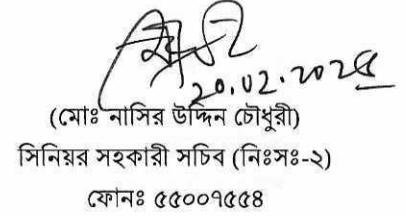 ২০.০২.২০২৫
(মোঃ নাসির উদ্দিন চৌধুরী)
সিনিয়র সহকারী সচিব (নিঃসঃ-২)
ফোনঃ ৫৫০০৭৫৫৪